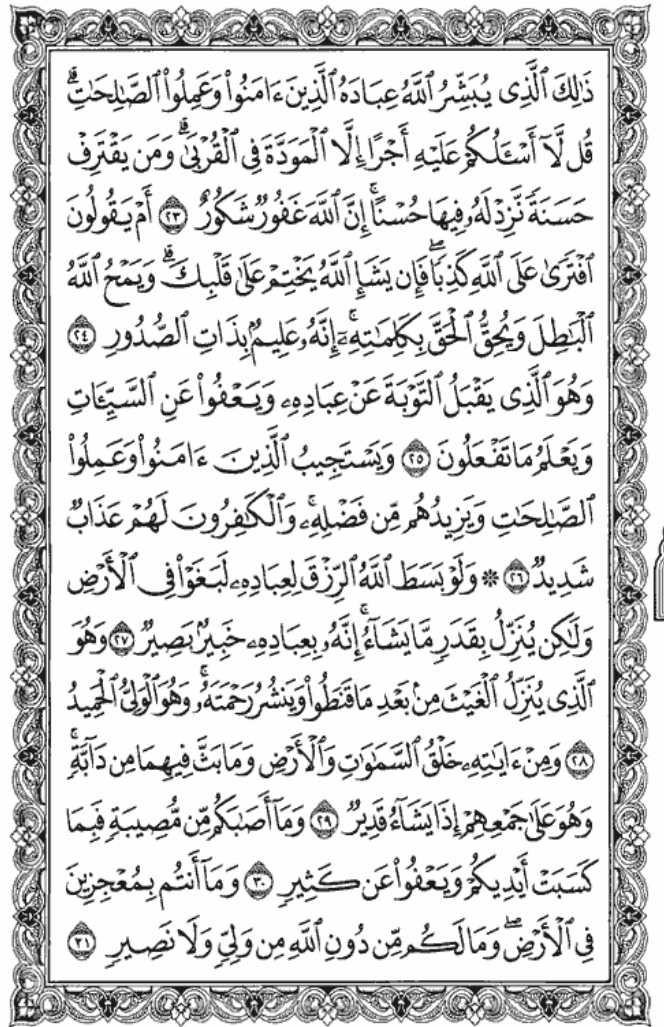 ذَٰلِكَ ٱلَّذِى يُبَشِّرُ ٱللَّهُ عِبَادَهُ ٱلَّذِينَ ءَامَنُوا۟ وَعَمِلُوا۟ ٱلصَّـٰلِحَـٰتِ ۗ
قُل لَّآ أَسْـَٔلُكُمْ عَلَيْهِ أَجْرًا إِلَّا ٱلْمَوَدَّةَ فِى ٱلْقُرْبَىٰ ۗ وَمَن يَقْتَرِفْ
حَسَنَةً نَّزِدْ لَهُۥ فِيهَا حُسْنًا ۚ إِنَّ ٱللَّهَ غَفُورٌ شَكُورٌ ٢٣ أَمْ يَقُولُونَ
ٱفْتَرَىٰ عَلَى ٱللَّهِ كَذِبًا ۖ فَإِن يَشَإِ ٱللَّهُ يَخْتِمْ عَلَىٰ قَلْبِكَ ۗ وَيَمْحُ ٱللَّهُ
ٱلْبَـٰطِلَ وَيُحِقُّ ٱلْحَقَّ بِكَلِمَـٰتِهِۦٓ ۚ إِنَّهُۥ عَلِيمٌۢ بِذَاتِ ٱلصُّدُورِ ٢٤
وَهُوَ ٱلَّذِى يَقْبَلُ ٱلتَّوْبَةَ عَنْ عِبَادِهِۦ وَيَعْفُوا۟ عَنِ ٱلسَّيِّـَٔاتِ
وَيَعْلَمُ مَا تَفْعَلُونَ ٢٥ وَيَسْتَجِيبُ ٱلَّذِينَ ءَامَنُوا۟ وَعَمِلُوا۟
ٱلصَّـٰلِحَـٰتِ وَيَزِيدُهُم مِّن فَضْلِهِۦ ۚ وَٱلْكَـٰفِرُونَ لَهُمْ عَذَابٌ
شَدِيدٌ ٢٦ ۞ وَلَوْ بَسَطَ ٱللَّهُ ٱلرِّزْقَ لِعِبَادِهِۦ لَبَغَوْا۟ فِى ٱلْأَرْضِ
وَلَـٰكِن يُنَزِّلُ بِقَدَرٍ مَّا يَشَآءُ ۚ إِنَّهُۥ بِعِبَادِهِۦ خَبِيرٌۢ بَصِيرٌ ٢٧ وَهُوَ
ٱلَّذِى يُنَزِّلُ ٱلْغَيْثَ مِنۢ بَعْدِ مَا قَنَطُوا۟ وَيَنشُرُ رَحْمَتَهُۥ ۚ وَهُوَ ٱلْوَلِىُّ ٱلْحَمِيدُ
٢٨ وَمِنْ ءَايَـٰتِهِۦ خَلْقُ ٱلسَّمَـٰوَٰتِ وَٱلْأَرْضِ وَمَا بَثَّ فِيهِمَا مِن دَآبَّةٍ ۚ
وَهُوَ عَلَىٰ جَمْعِهِمْ إِذَا يَشَآءُ قَدِيرٌ ٢٩ وَمَآ أَصَـٰبَكُم مِّن مُّصِيبَةٍ فَبِمَا
كَسَبَتْ أَيْدِيكُمْ وَيَعْفُوا۟ عَن كَثِيرٍ ٣٠ وَمَآ أَنتُم بِمُعْجِزِينَ
فِى ٱلْأَرْضِ ۖ وَمَا لَكُم مِّن دُونِ ٱللَّهِ مِن وَلِىٍّ وَلَا نَصِيرٍ ٣١